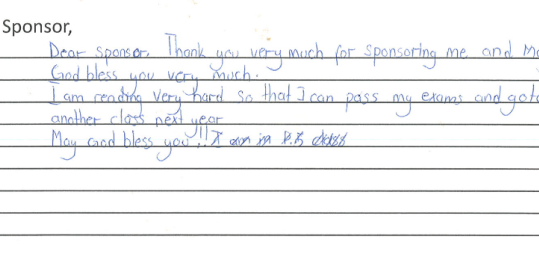 Sponsor,
Dear sponsor, Thank you very much for sponsoring me and Ma
God bless you very much.
I am reading very hard so that I can pass my exams and goto
another class next year
May God bless you!! I am in P.5